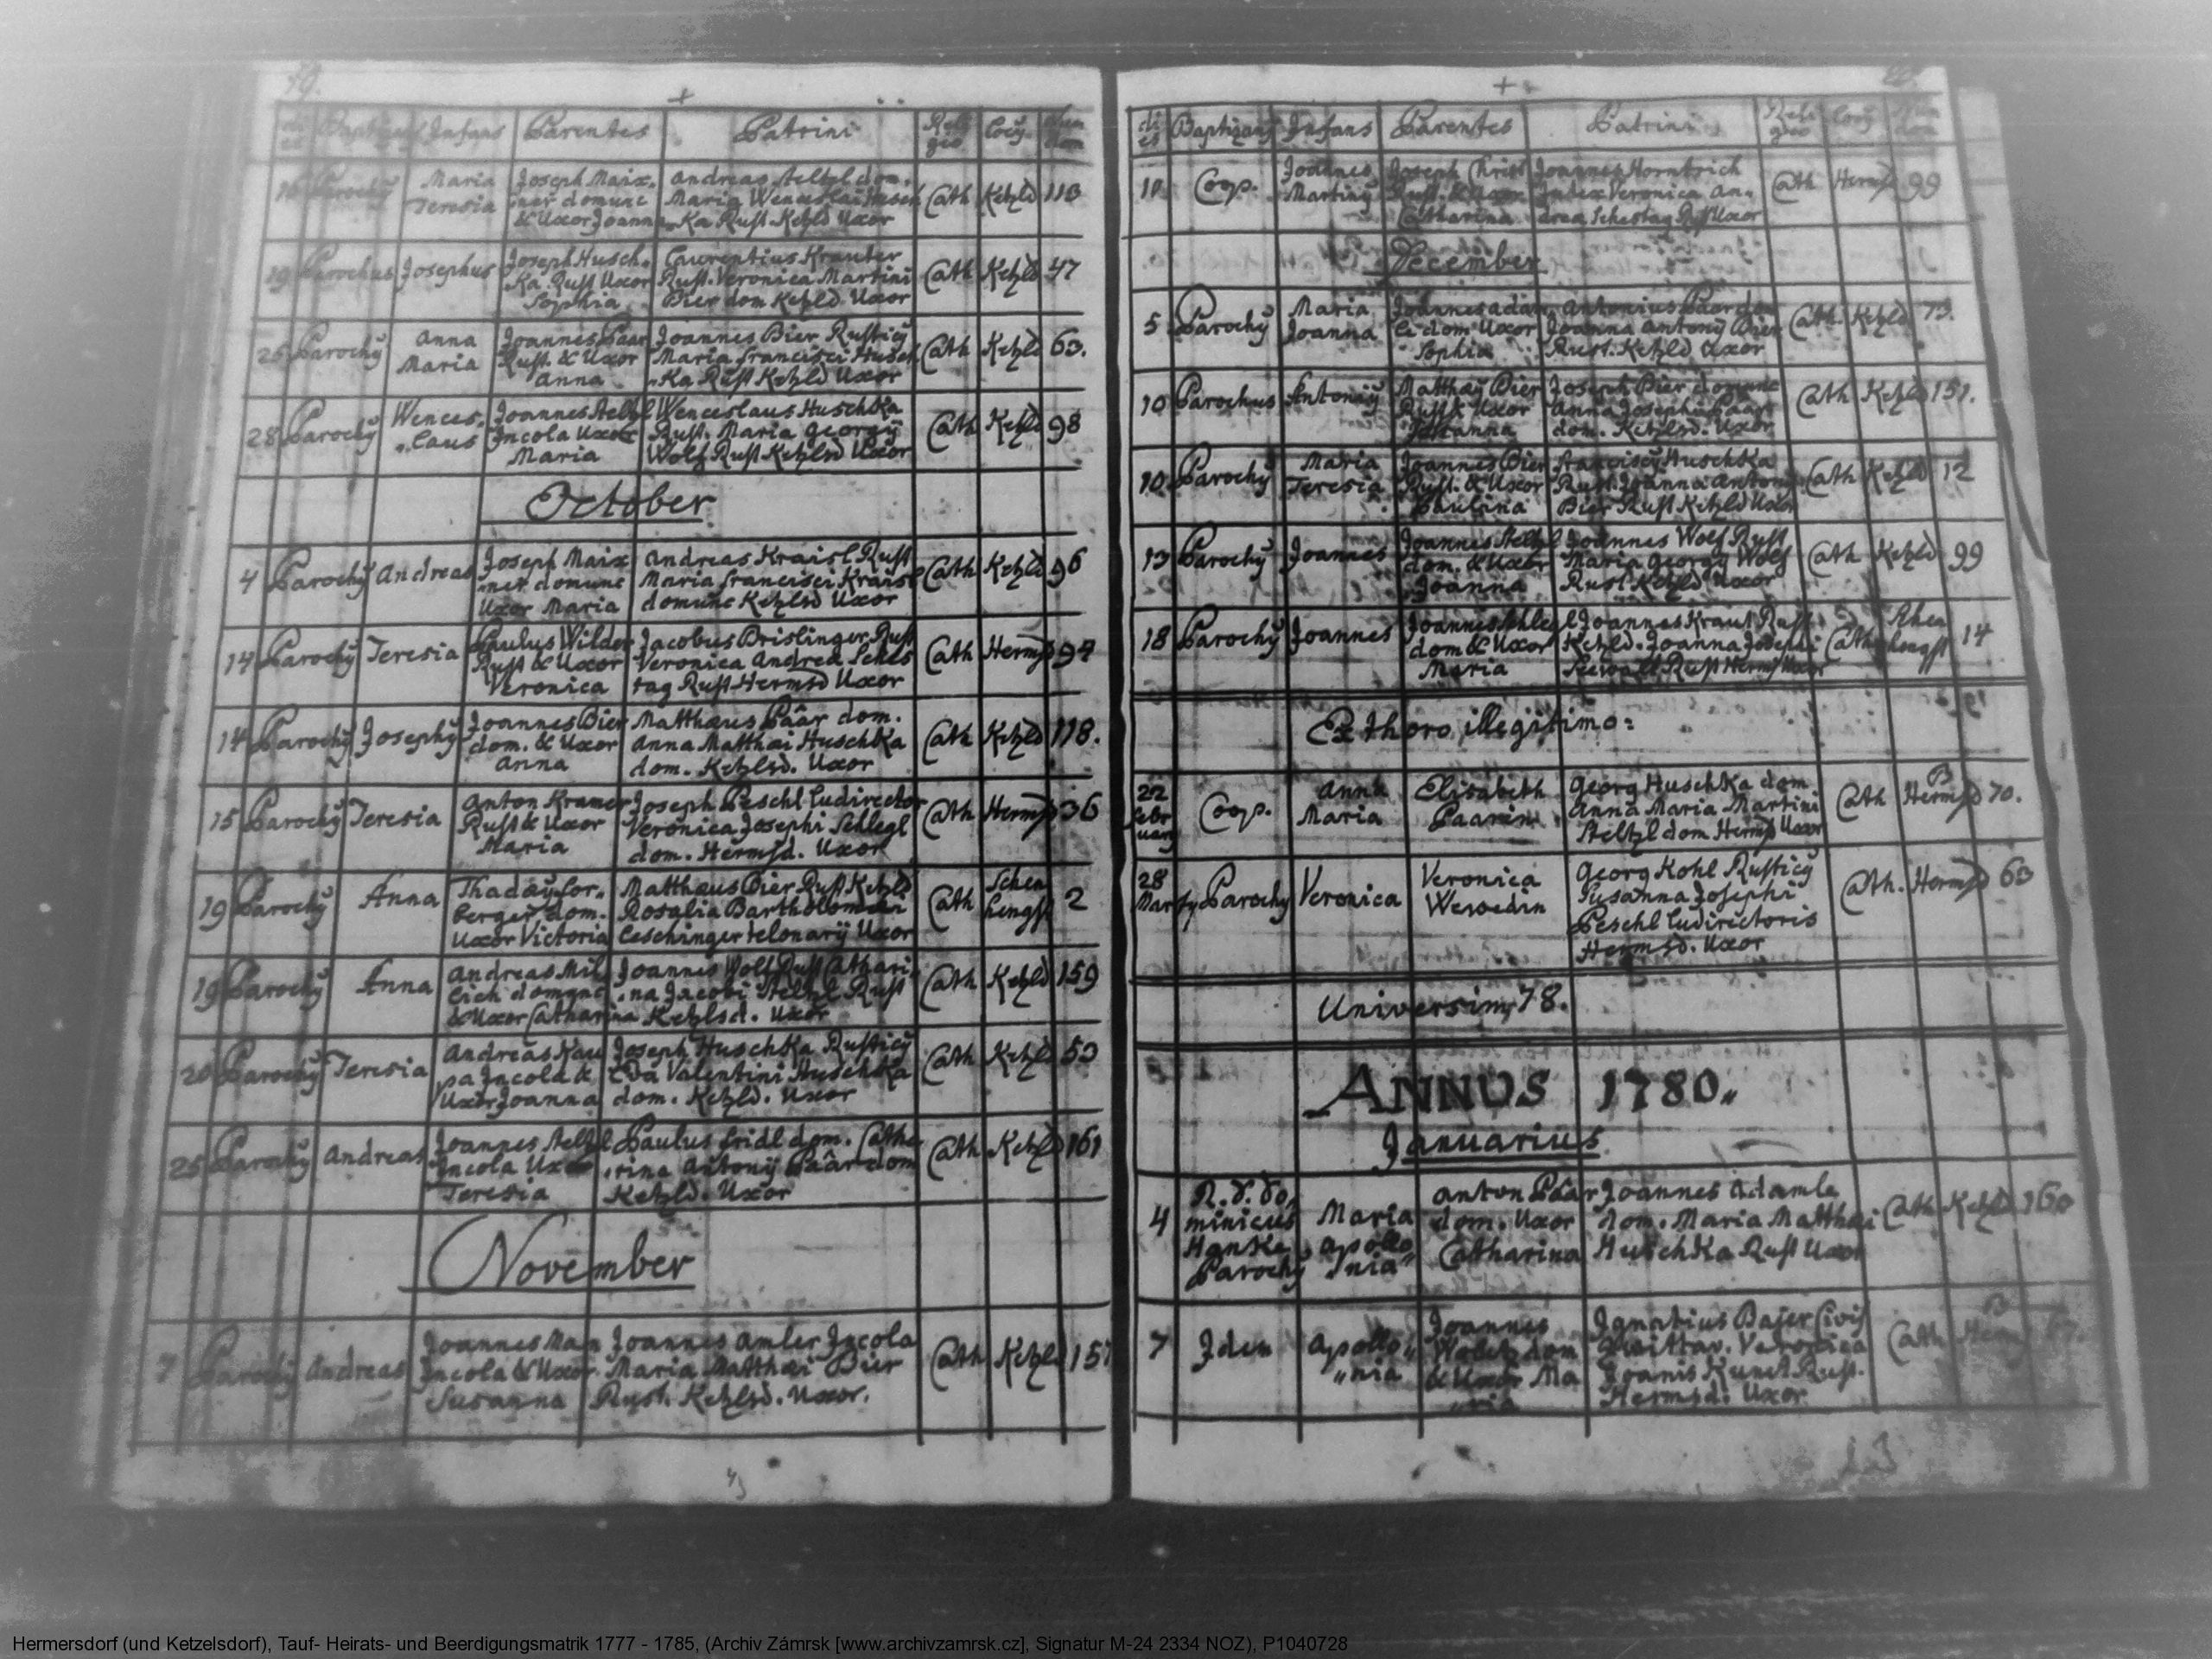 19.
di es Baptizans Infans Parentes Patrini Reli gio Locus Num dom
16 Parochy Maria Teresia Joseph Maix,
ner domunc & Uxor Joanna
Andreas Steltzl dom.
Maria Wenceslai Husch
Ka Rust Ketzld Uxor
Cath Ketzld 113
19 Parochus Josephus Joseph Husch,
Ka Rust Uxor
Sophia
Laurentius Krauter
Rust. Veronica Martini
Bier dom Ketzld. Uxor
Cath Ketzld 47
25 Parochy Anna Maria
Joannes Paar
Rust. & Uxor
Anna
Joannes Bier Rusticy
Maria Francisci Husch
Ka Rust Ketzld Uxor
Cath Ketzld 63.
28 Parochy Wences,
laus
Joannes Steltzl
Incola Uxor
Maria
Wenceslaus Huschka
Rust. Maria Georgy
Wolf Rust Ketzlsd Uxor
Cath Ketzld 98
October
4 Parochy Andreas
Joseph Maix
ner domunc
Uxor Maria
Andreas Kraisl Rust
Maria Francisci Kraisl
domunc Ketzlsd Uxor
Cath Ketzld 96
14 Parochy Teresia
Paulus Wilder
Rust & Uxor
Veronica
Jacobus Brislinger Rust
Veronica Andrea Sches
tag Rust Hermsd Uxor
Cath Hermsd 94
14 Parochy Josephy
Joannes Bier
dom. & Uxor
Anna
Matthaus Päär dom.
Anna Matthai Huschka
dom. Ketzlsd. Uxor
Cath Ketzld 118.
15 Parochy Teresia
Anton Kramer
Rust & Uxor
Maria
Joseph Peschl Ludirector
Veronica Josephi Schlegl
dom. Hermsd. Uxor
Cath Hermsd 36
19 Parochy Anna
Thaday Lor,,
berger dom.
Uxor Victoria
Matthaus Bier Rust Ketzld
Rosalia Bartholomai
Leschinger telonarij Uxor
Cath Schen
hengst 2
19 Parochy Anna
Andreas Mil
lich domunc
& Uxor Catharina
Joannes Wolf Rust Cathari
na Jacobi Steltzl Rust
Ketzlsd. Uxor
Cath Ketzld 159
20 Parochy Teresia
Andreas Kau
pa Incola &
Uxor Joanna
Joseph Huschka Rusticy
Eva Valentini Huschka
dom. Ketzld. Uxor
Cath Ketzld 53
25 Parochy Andreas
Joannes Steltzl
Incola Uxor
Teresia
Paulus Fridl dom. Catha
rina Antonij Päär dom
Ketzld. Uxor
Cath Ketzld 161
November
7 Parochy Andreas
Joannes Man
Incola & Uxor
Susanna
Joannes Amler Incola
Maria Matthai Bier
Rust. Ketzlsd. Uxor.
Cath Ketzld 157
di es Baptizans Infans Parentes Patrini Reli gio Locy Num dom
10 Coop. Joannes
Martiny
Joseph Christ
Rust. & Uxor
Catharina
Joannes Horntrich
Judex Veronica An,,
drea Schestag Rust Uxor
Cath Hermsd 99
December
5 Parochy Maria
Joanna
Joannes Adam
le dom Uxor
Sophia
Antonius Paar dom
Joanna Antony Bier
Rust. Ketzld Uxor
Cath. Ketzld 73.
10 Parochus Antonij
Matthaij Bier
Rust & Uxor
Joanna
Joseph Bier domunc
Anna Josephi Paar
dom. Ketzlsd. Uxor
Cath Ketzld 151.
10 Parochy Maria
Teresia
Joannes Bier
Rust. & Uxor
Paulina
Franciscy Huschka
Rust. Joanna Antony
Bier Rust Ketzld Uxor
Cath Ketzld 12
13 Parochy Joannes
Joannes Steltzl
dom. & Uxor
Joanna
Joannes Wolf Rust
Maria Georgy Wolf
Rust Ketzld Uxor
Cath Ketzld 99
18 Parochy Joannes
Joannes Schlegl
dom & Uxor
Maria
Joannes Kraut Rust
Ketzld. Joanna Josephi
Rust Hermsd Uxor
Cath Schen
hengst 14
Ex thoro illegitimo:
22
Febr
uary
Coop. Anna
Maria
Elisabeth
Paarin
Georg Huschka dom
Anna Maria Martini
Steltzl dom Hermsd Uxor
Cath Hermsd 70.
28
Marty
Parochy Veronica
Veronica
Georg Kohl Rusticy
Susanna Josephi
Peschl Ludirectoris
Hermsd. Uxor
Cath. Hermsd 63
Universim 78.
ANNUS 1780.,
Januarius
4 R. D. Do,
minicus
Hanke
Parochy
Maria
Apollo,,
nia
Anton Päär
dom. Uxor
Catharina
Joannes Adamle
dom. Maria Matthai
Huschka Rust Uxor
Cath Ketzld 160
7 Idem Apollo,,
nia
Joannes
dom
& Uxor Ma
ria
Ignatius Bajer Civis
Zwittav. Veronica
Joanis Kunet Rust.
Hermsd. Uxor
Cath
Hermersdorf (und Ketzelsdorf), Tauf- Heirats- und Beerdigungsmatrik 1777 - 1785, (Archiv Zámrsk [www.archivzamrsk.cz], Signatur M-24 2334 NOZ), P1040728